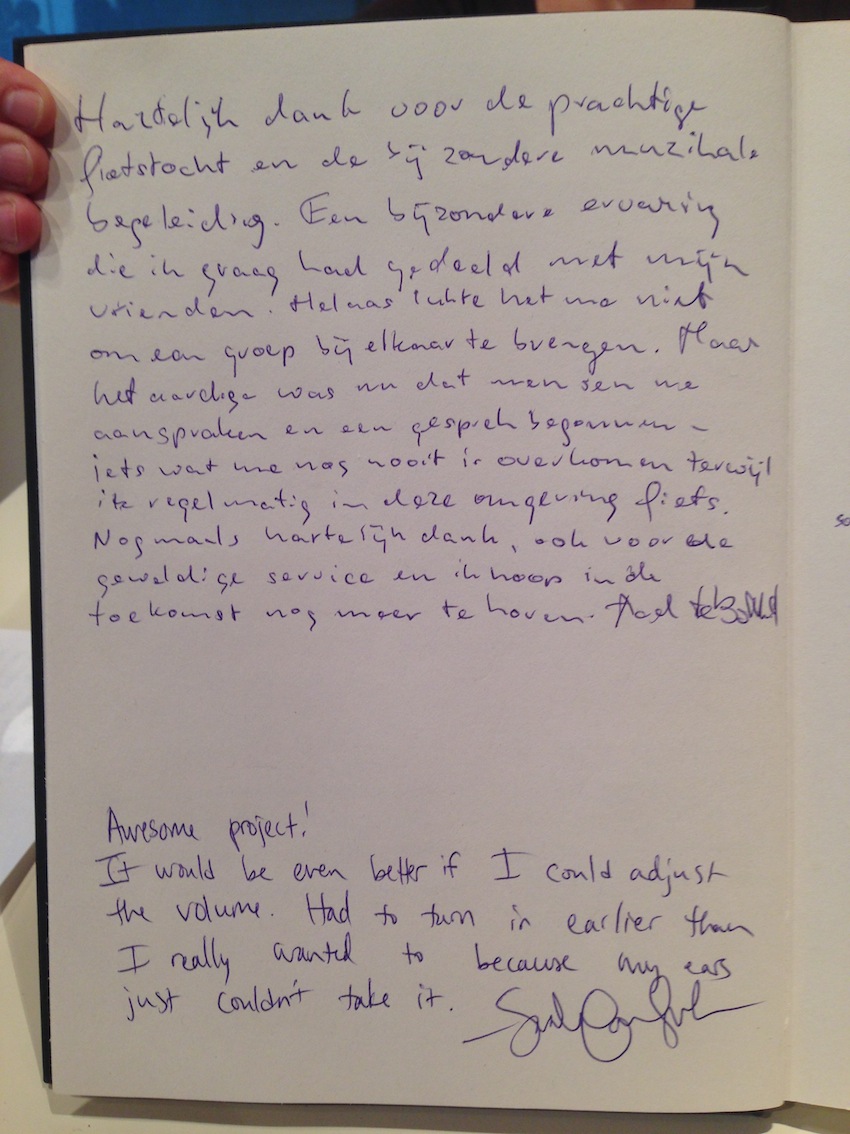 Hartelijk dank voor de prachtige
fietstocht en de bijzondere muzikale
begeleiding. Een bijzondere ervaring
die ik graag had gedeeld met mijn
vrienden. Helaas lukte het me niet
om een groep bij elkaar te brengen. Maar
het aardige was nu dat mensen me
aanspraken en een gesprek begonnen -
iets wat me nog nooit is overkomen terwijl
ik regelmatig in deze omgeving fiets.
Nogmaals hartelijk dank, ook voor de
geweldige service en ik hoop in de
toekomst nog meer te horen.
Awesome project!
It would be even better if I could adjust
the volume. Had to turn in earlier than
I really wanted to because my ears
just couldn't take it.